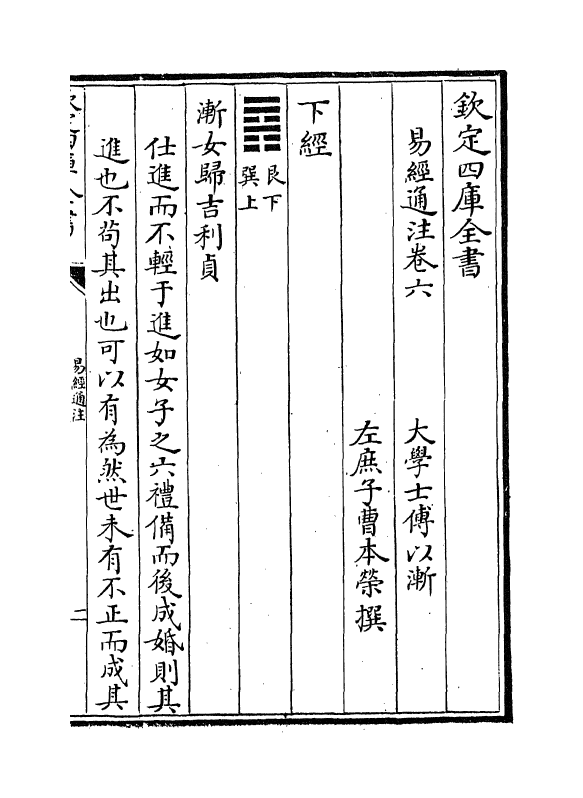 欽定四庫全書
易經通注卷六
大學士傅以漸
左庶子曹本榮撰
下經
艮下
巽上
漸女歸吉利貞
仕進而不輕于進如女子之六禮備而後成婚則其
進也不苟其出也可以有為然世未有不正而成其
易經通注